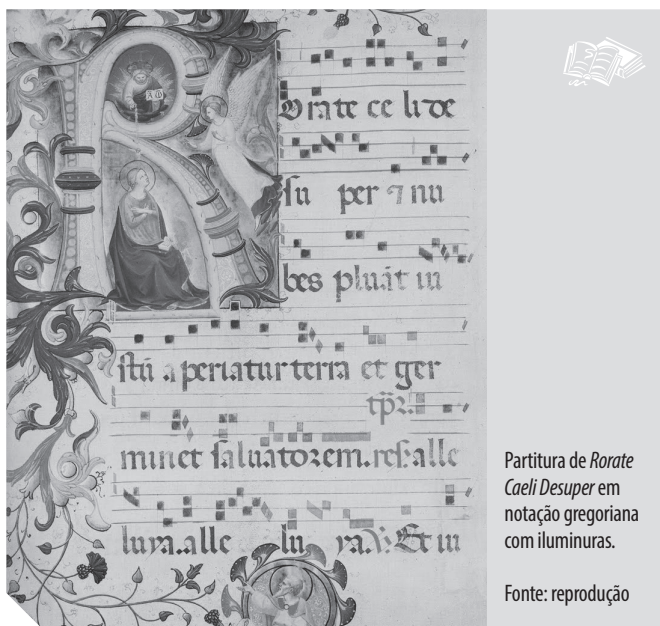 Rorate celi de
su per ⁊ nu
bes pluāt iu
stū aperiatur terra et ger
tp̄ꝛ.
minet saluatorem.res.alle
luya..alle lu ya.℣.Et iu
Partitura de Rorate
Caeli Desuper em
notação gregoriana
com iluminuras.
Fonte: reprodução